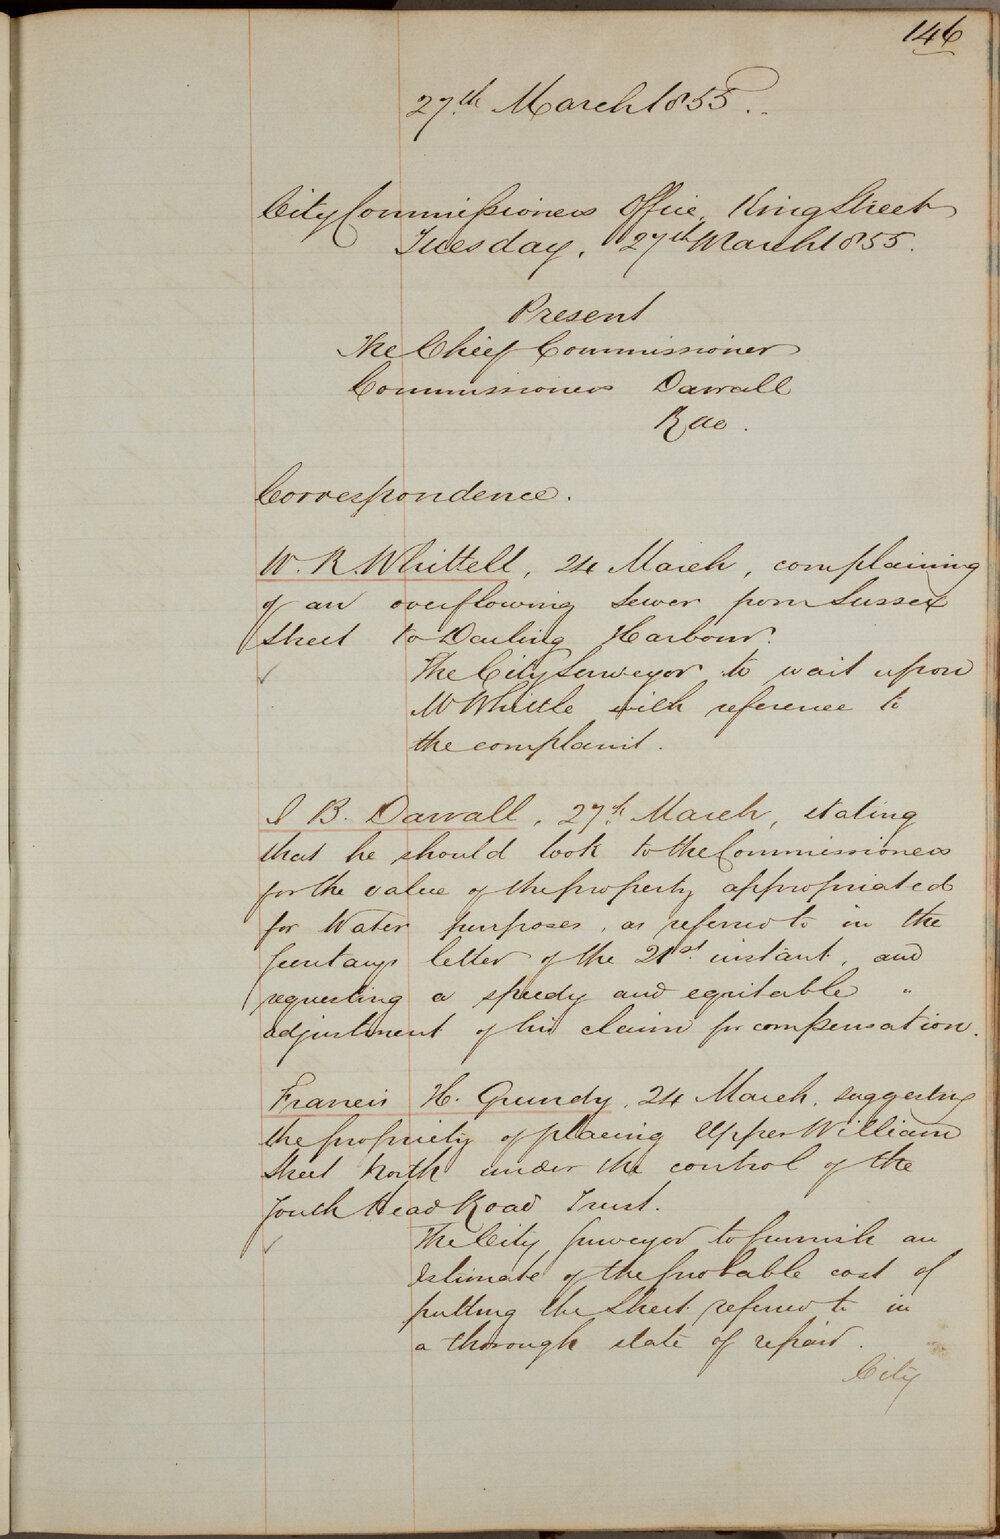 146
27th March 1855.
City Commissioners Office, King Street
Tuesday, 27th March 1855.
Present
The Chief Commissioner
Commissioners Darvall
Rae.
Correspondence.
W. R. Whittell, 24 March, complaining
of an overflowing sewer from Sussex
Street to Darling Harbour.
The City Surveyor to wait upon
Mr Whittle with reference to
the complaint.
J B. Darvall, 27th March, stating
that he should look to the Commissioners
for the value of the property appropriated
for Water purposes, as referred to in the
Secretary's letter of the 21st instant, and
requesting a speedy and equitable "
adjustment of his claim for compensation.
Francis H. Grundy, 24 March, suggesting
the propriety of placing Upper William
Street North under the control of the
South Head Road Trust.
The City Surveyor to furnish an
Estimate of the probable cost of
putting the Street referred to in
a thorough state of repair.
City